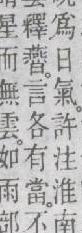 爲日氣。許注淮南
雲釋䕾。言各有當。不
星而無雲。如雨部